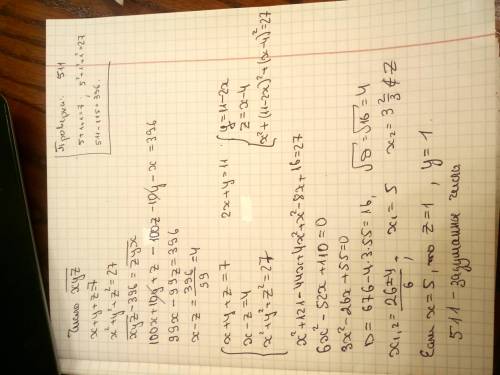 Число x̅y̅z̅
x+y+z=7
x²+y²+z²=27
x̅y̅z̅-396=z̅y̅x̅
100x+10y+z-100z-10y-x=396
99x-99z=396
x-z=396/99=4
{x+y+z=7
x-z=4
x²+y²+z²=27
2x+y=11
{y=11-2x
z=x-4
x²+(11-2x)²+(x-4)²=27
x²+121-44x+4x²+x²-8x+16=27
6x²-52x+110=0
3x²-26x+55=0
D=676-4·3·55=16, √D=√16=4
x₁,₂=(26±4)/6, x₁=5 x₂=3 2/3 ∉ Z
Если x=5, то z=1, y=1
511-задуманное число
Проверка: 511
5+1+1=7, 5²+1²+1²=27
511-115=396.